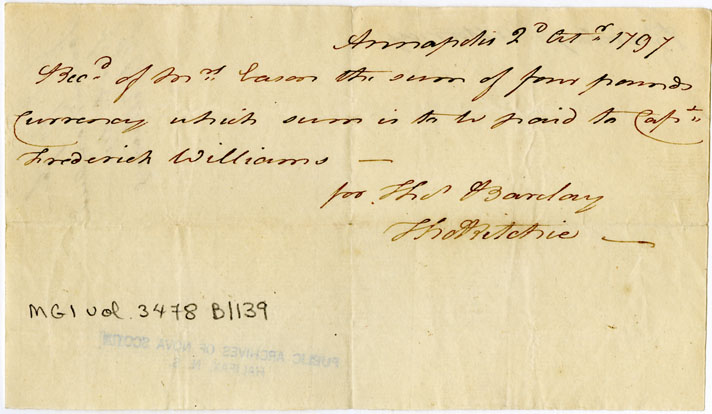 Annapolis 2d Octr 1797
Recd of Mrs Eason the sum of four pounds
Currency which sum is to be paid to Captn
Frederick Williams —
for Thos Barclay
Tho Ritchie —
MG1 vol. 3478 B1139
PUBLIC ARCHIVES OF NOVA SCOTIA
HALIFAX, N. S.